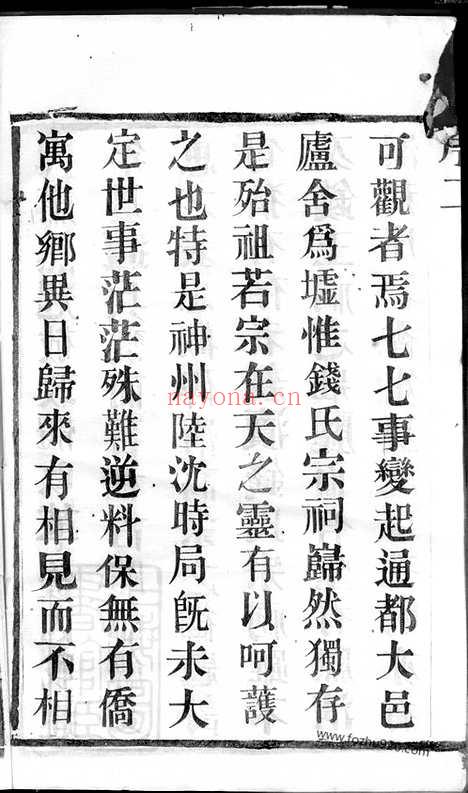 序二
可觀者焉七七事變起通都大邑
廬舍爲墟惟錢氏宗祠巋然獨存
是殆祖若宗在天之靈有以呵護
之也特是神州陸沈時局旣未大
定世事茫茫殊難逆料保無有僑
寓他鄉異日歸來有相見而不相
nayona.cn
www.fozhu920.com